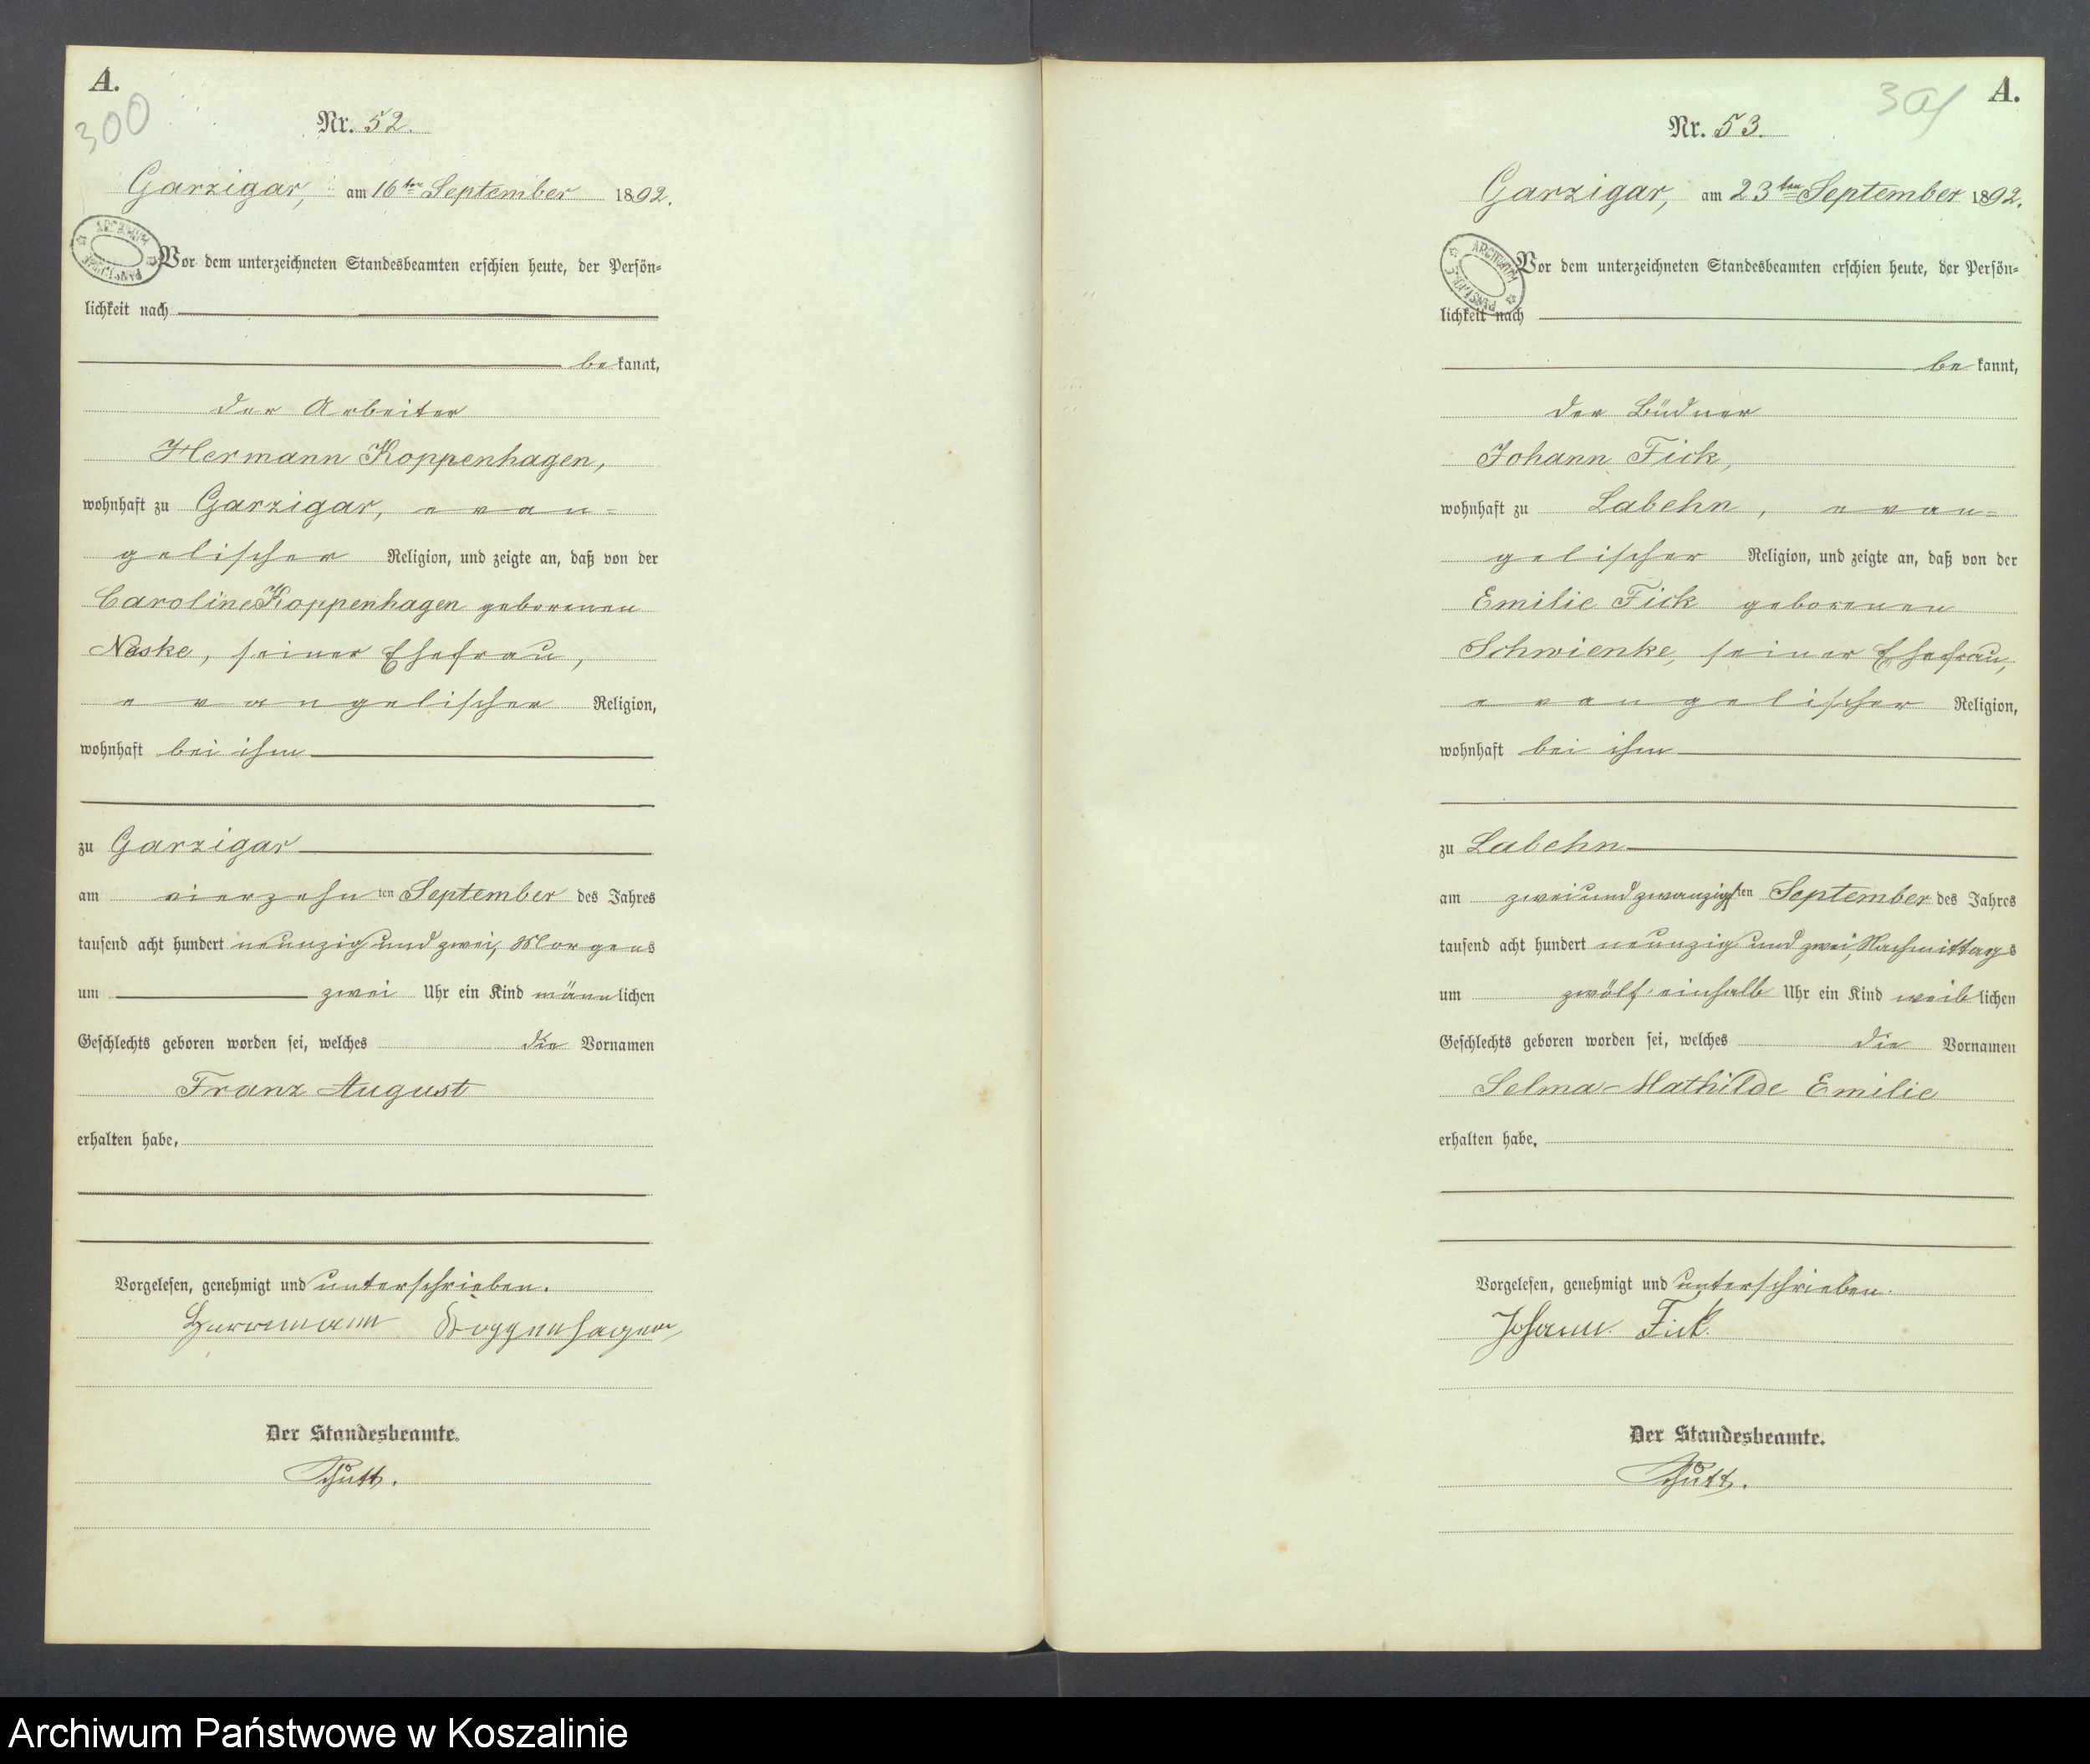 A.
300
Nr. 52.
Garzigar, am 16ten September 1892.
ARCHIWUM PAŃSTWOWE
Vor dem unterzeichneten Standesbeamten erschien heute, der Persön=
lichkeit nach
be kannt,
der Arbeiter
Hermann Koppenhagen,
wohnhaft zu Garzigar, evan=
gelischer Religion, und zeigte an, daß von der
Caroline Koppenhagen geborenen
Naske, seiner Ehefrau,
evangelischer Religion,
wohnhaft bei ihm
zu Garzigar
am vierzehn ten September des Jahres
tausend acht hundert neunzig und zwei, Morgens
um zwei Uhr ein Kind männlichen
Geschlechts geboren worden sei, welches die Vornamen
Franz August
erhalten habe.
Vorgelesen, genehmigt und unterschrieben.
Herrmann Koppenhagen
Der Standesbeamte.
A.
Nr. 53.
Garzigar, am 23ten September 1892.
ARCHIWUM PAŃSTWOWE
Vor dem unterzeichneten Standesbeamten erschien heute, der Persön=
lichkeit nach
be kannt,
der Büdner
Johann Fick,
wohnhaft zu Labehn, evan=
gelischer Religion, und zeigte an, daß von der
Emilie Fick geborenen
Schwienke, seiner Ehefrau,
evangelischer Religion,
wohnhaft bei ihm
zu Labehn
am zweiundzwanzigsten September des Jahres
tausend acht hundert neunzig und zwei, Nachmittags
um zwölf einhalb Uhr ein Kind weiblichen
Geschlechts geboren worden sei, welches die Vornamen
Selma Mathilde Emilie
erhalten habe.
Vorgelesen, genehmigt und unterschrieben.
Johann Fick.
Der Standesbeamte.
Archiwum Państwowe w Koszalinie